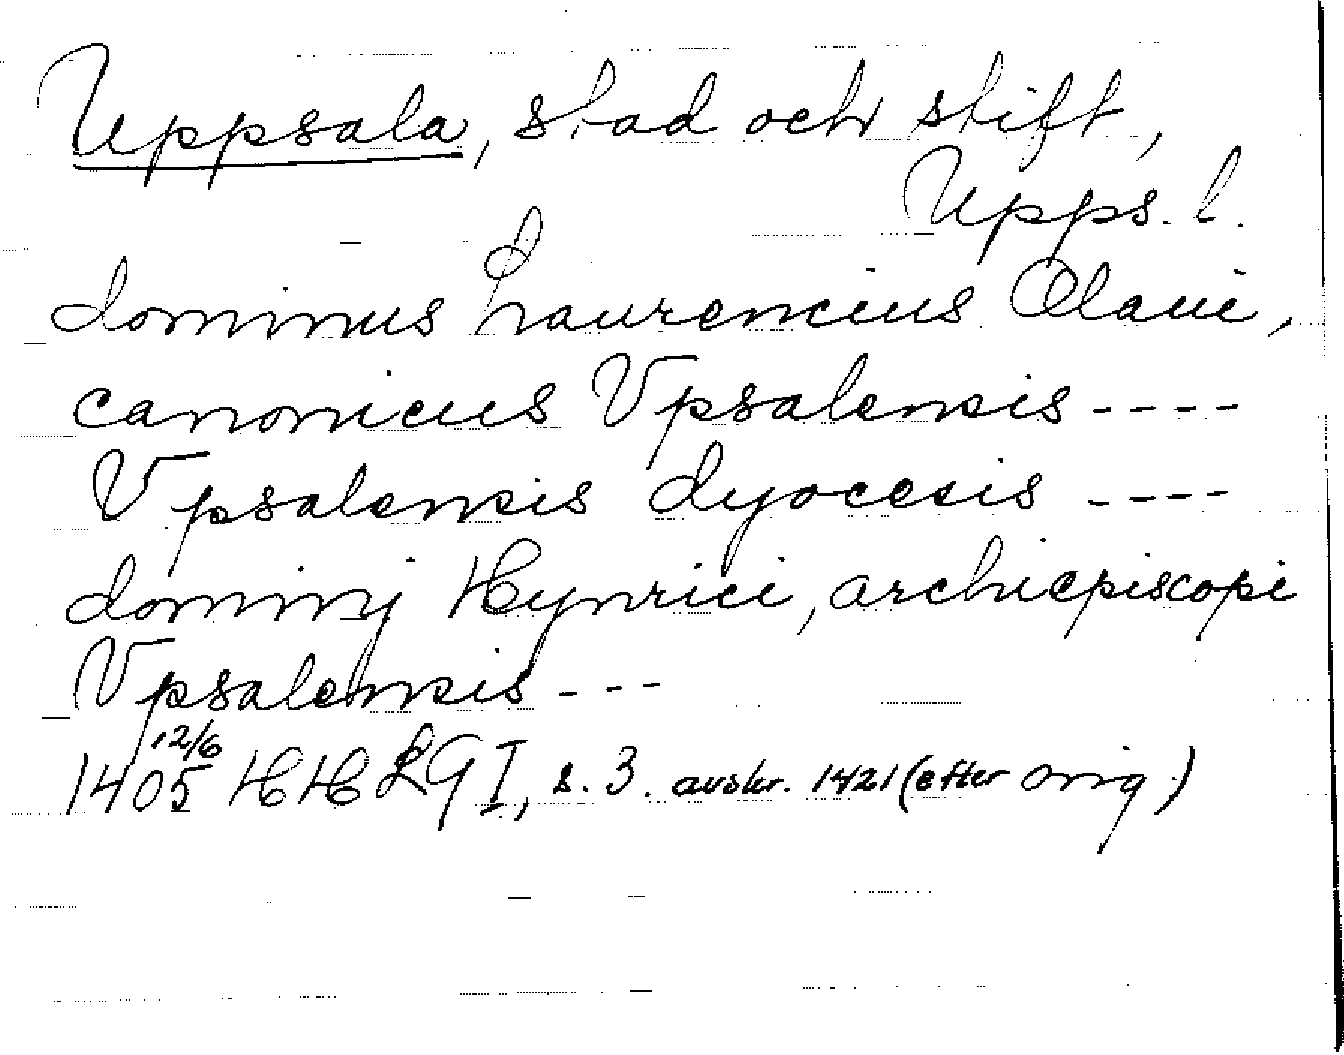 Uppsala, stad och stift,
Upps. l.
dominus Laurencius Olaui,
canonicus Vpsalensis ----
Vpsalensis dyocesis ----
dominj Hynrici, archiepiscopi
Vpsalensis ---
1405 12/6 HH LG I, s. 3. avskr. 1421 (efter orig.)